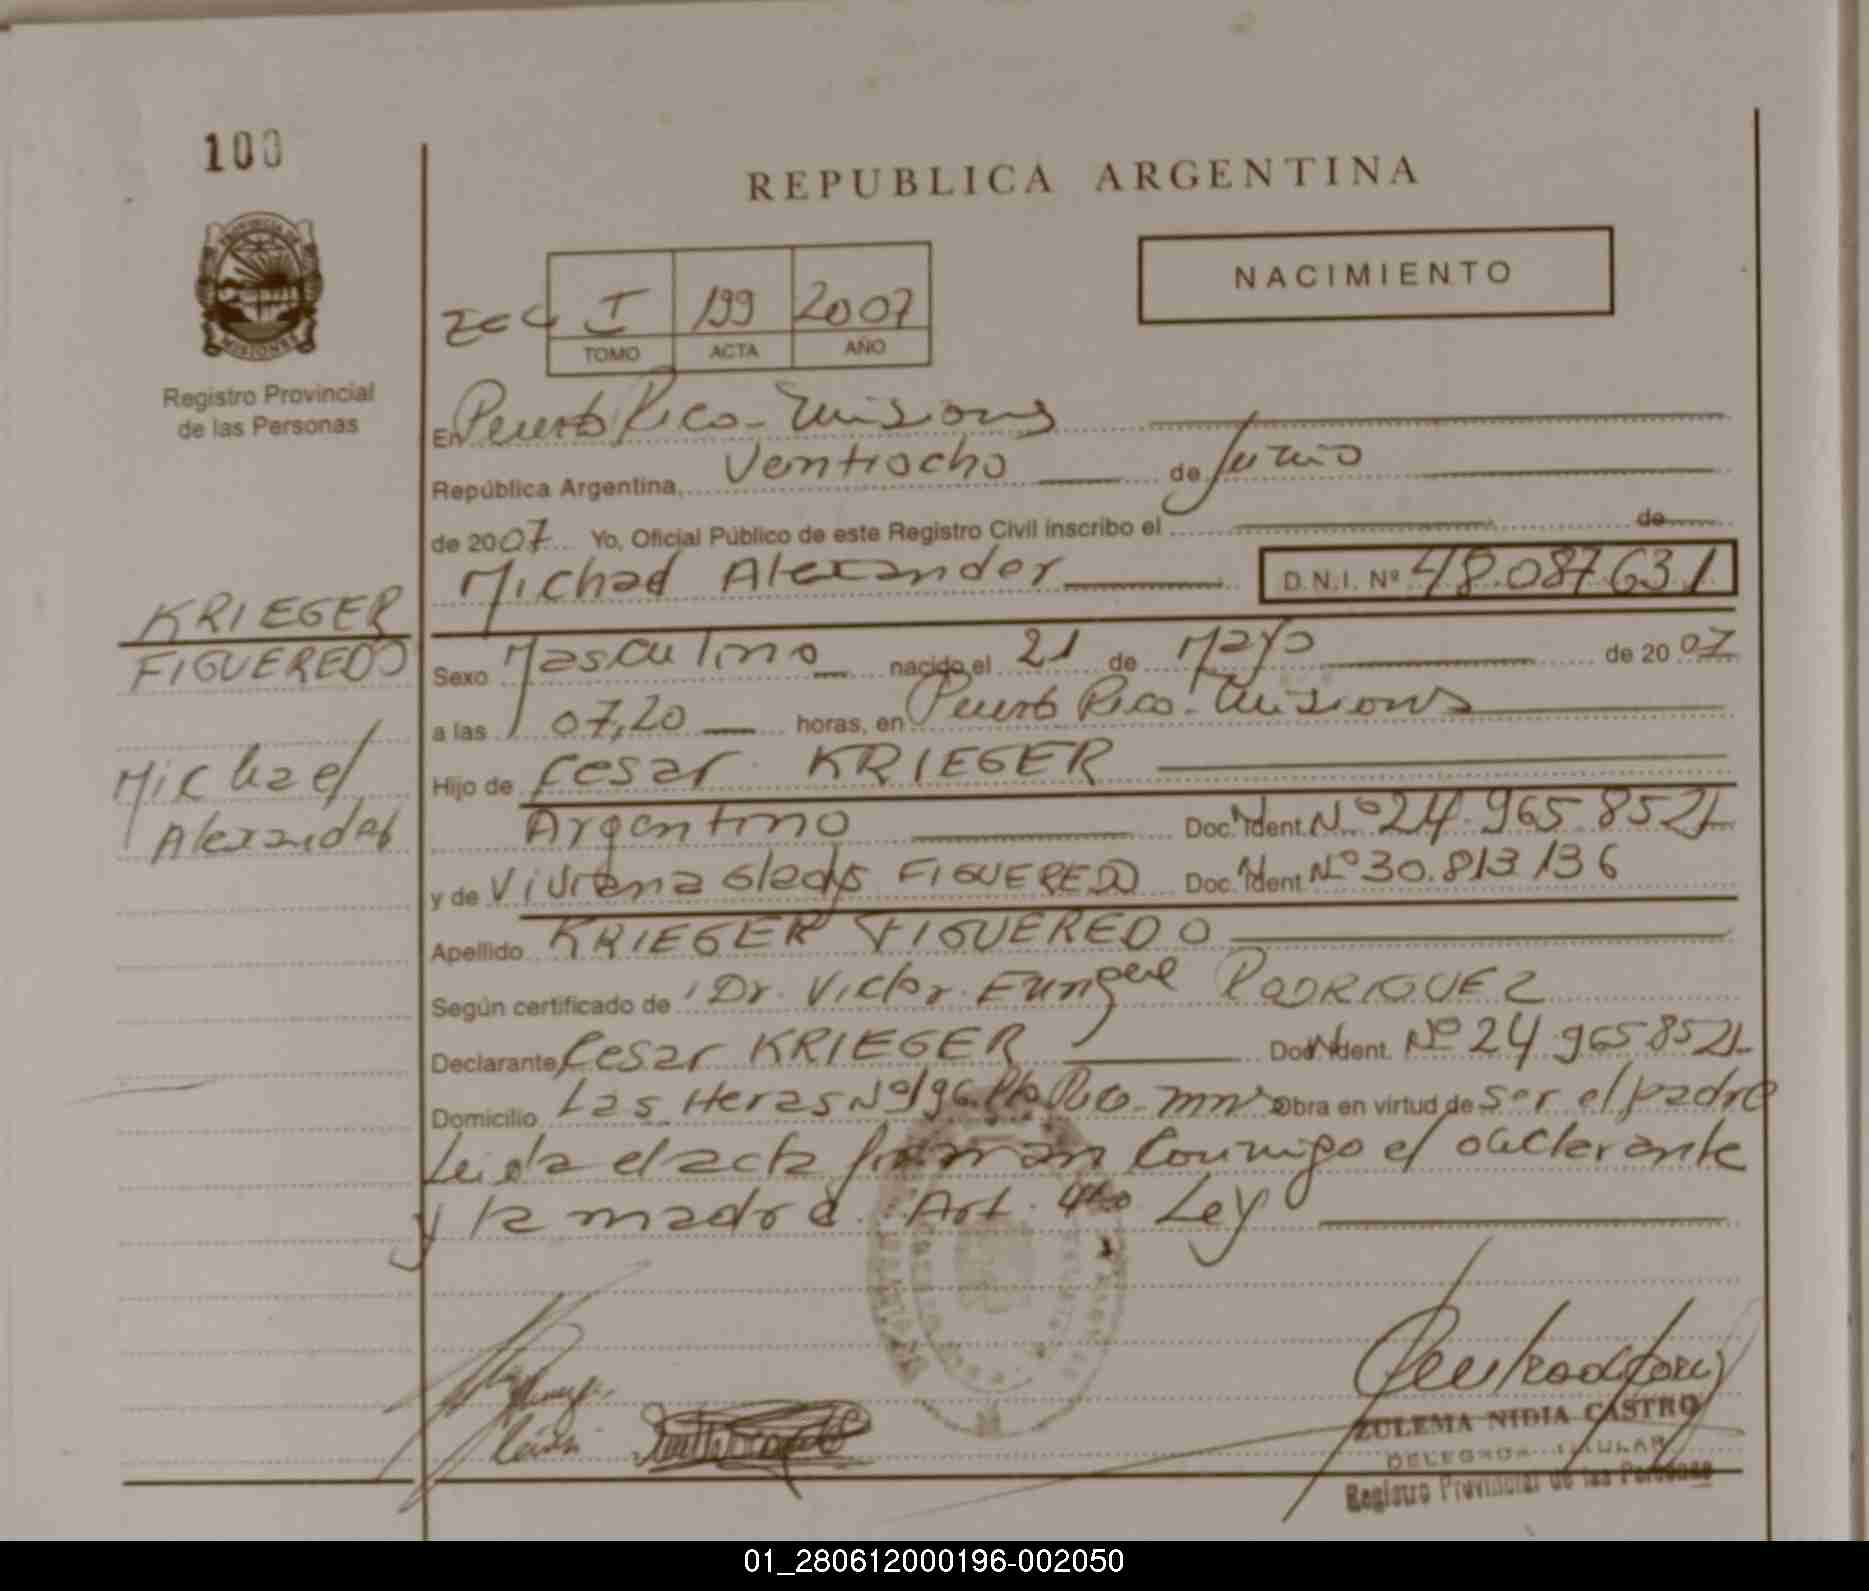 100
REPUBLICA ARGENTINA
NACIMIENTO
I 199 2007
TOMO ACTA AÑO
PROVINCIA DE
MISIONES
Registro Provincial
de las Personas
En Puerto Rico - Misiones
República Argentina, Ventiocho de Junio
de 2007 Yo, Oficial Público de este Registro Civil inscribo el de
Michael Alexander D.N.I. Nº 48.087.631
KRIEGER
FIGUEREDO
Michael
Alexander
Sexo Masculino nacido el 21 de Mayo de 2007
a las 07,20 horas, en Puerto Rico - Misiones
Hijo de Cesar KRIEGER
Argentino Doc. Ident. Nº 24.965.852
y de Viviana Gladys FIGUEREDO Doc. Ident. Nº 30.813.136
Apellido KRIEGER FIGUEREDO
Según certificado de Dr. Victor Enrique RODRIGUEZ
Declarante Cesar KRIEGER Doc. Ident. Nº 24.965.852
Domicilio Las Heras Nº 196 Pto Rico - Mnes Obra en virtud de ser el padre
Leida el acta firman conmigo el declarante
y la madre. Art. 4to Ley
ZULEMA NIDIA CASTRO
DELEGADA TITULAR
Registro Provincial de las Personas
01_280612000196-002050